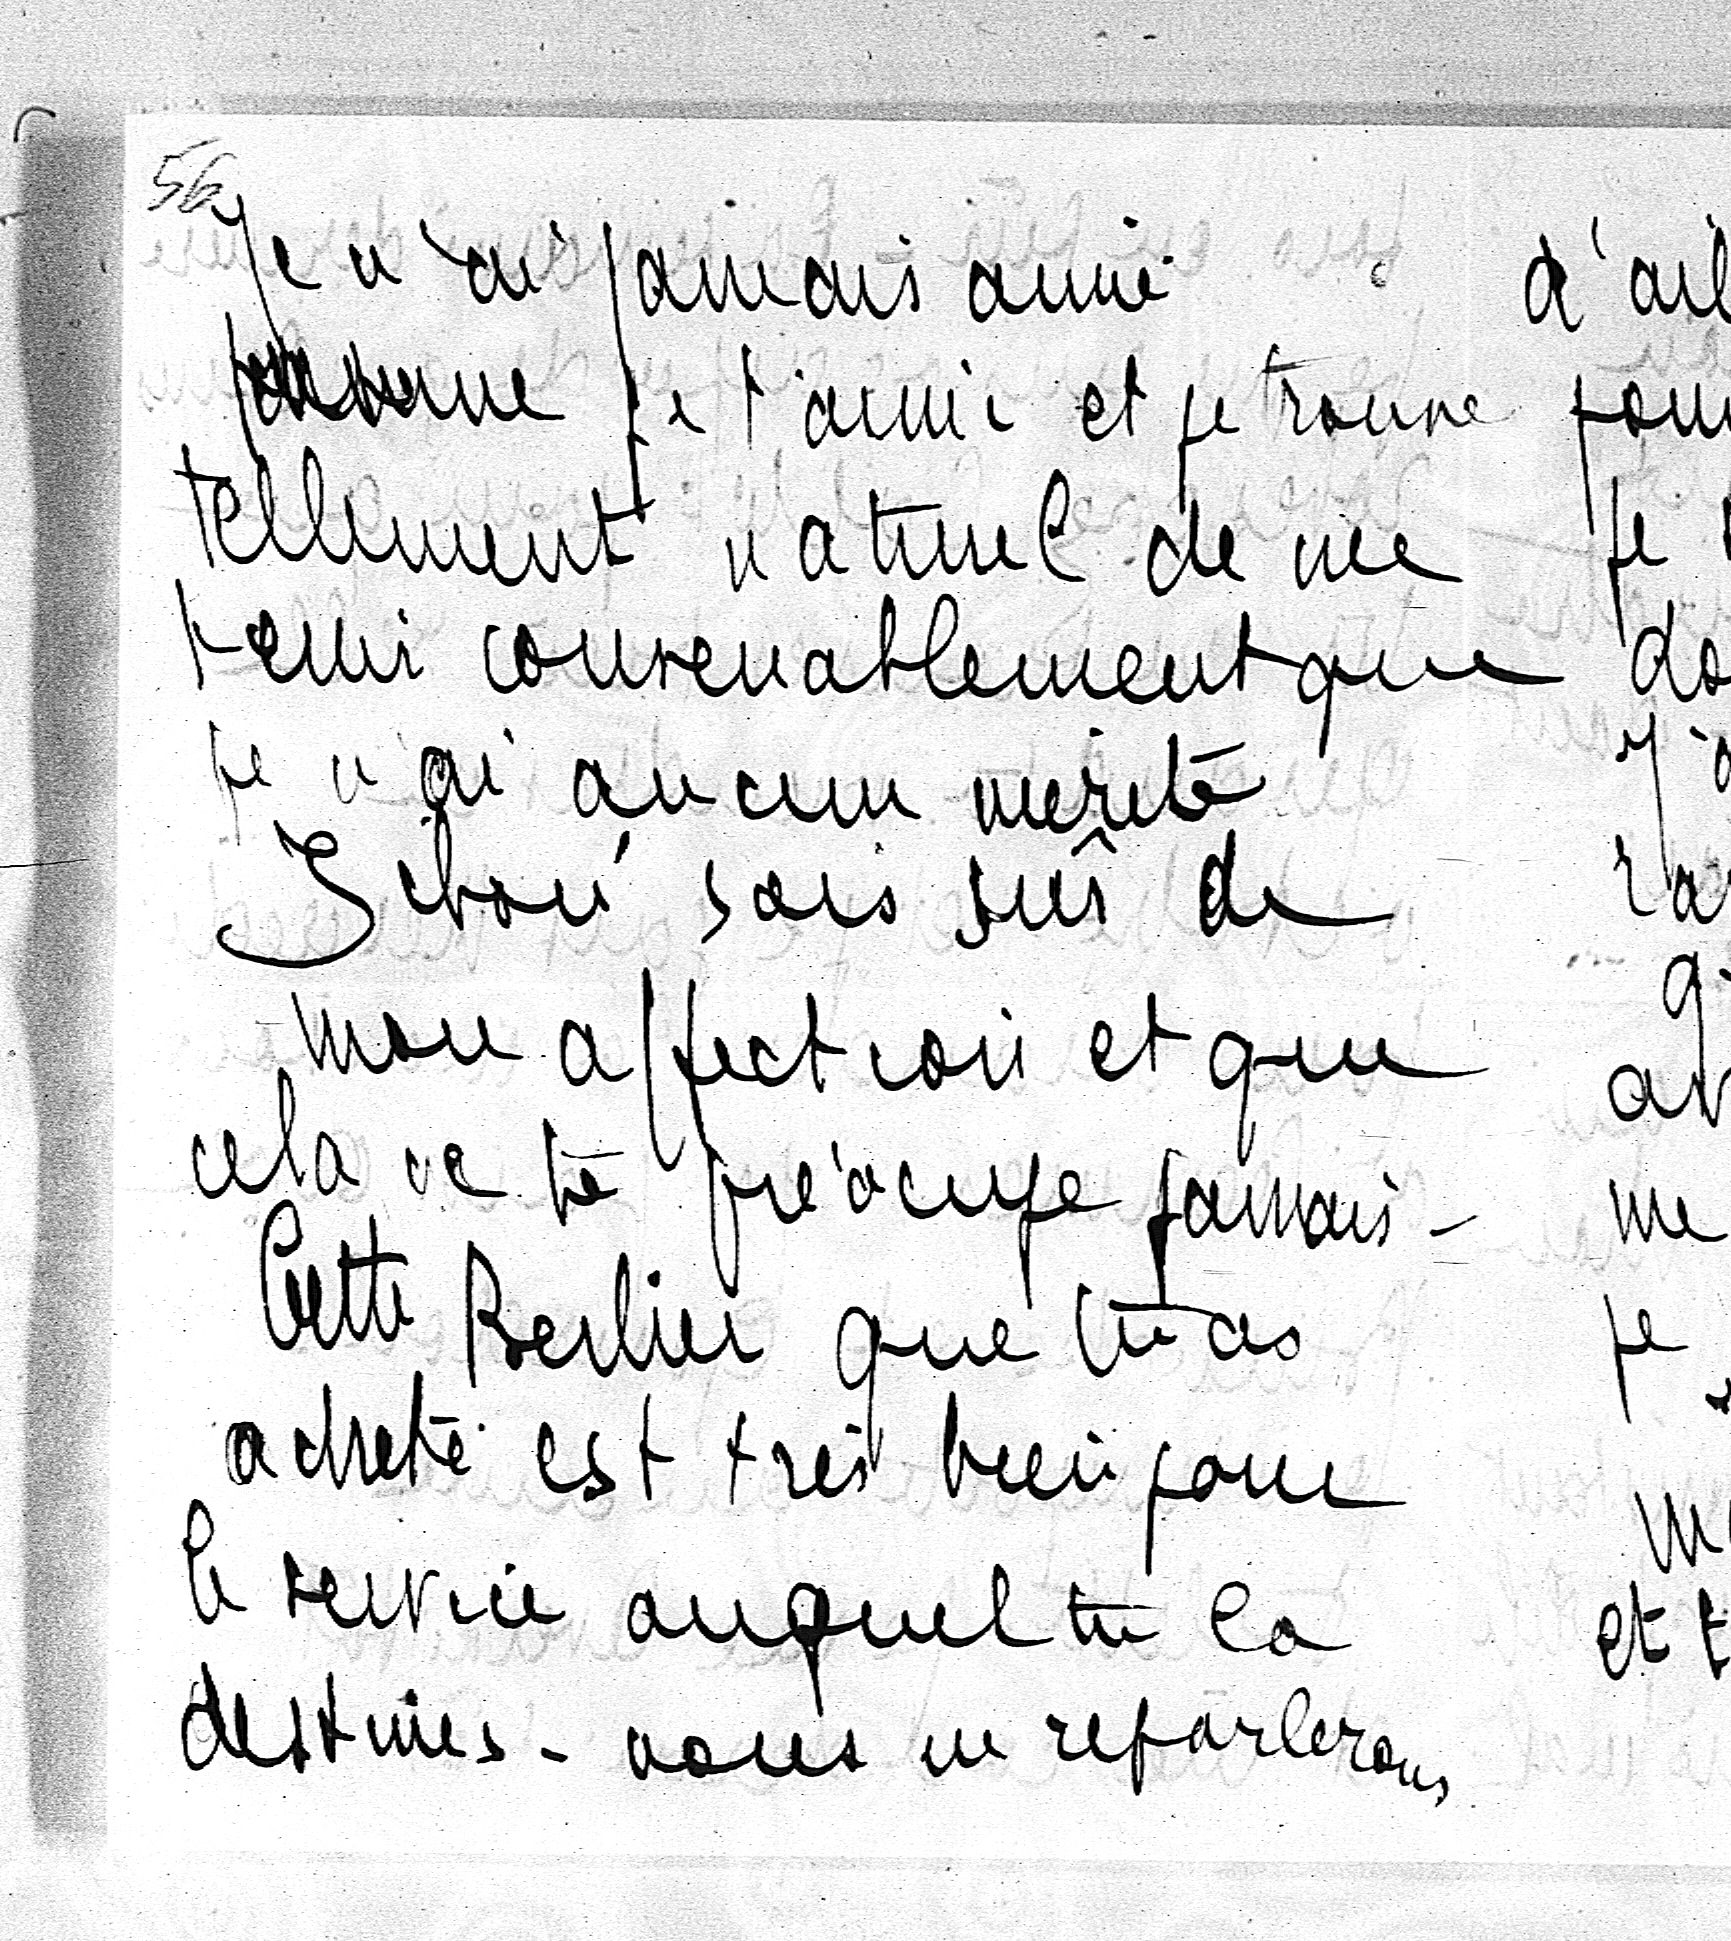 56
Je n'ai jamais aimé
personne je t'aime et je trouve
tellement naturel de me
tenir convenablement que
je n'ai aucun merite
Tchou sois sûr de
mon affection et que
cela ne te préocupe jamais -
Cette Berliet que tu as
acheté est très bien pour
le service auquel tu la
destines - nous en reparlerons
d'ail
pour
je
do
J'a
ra
q
av
me
je
m
et t